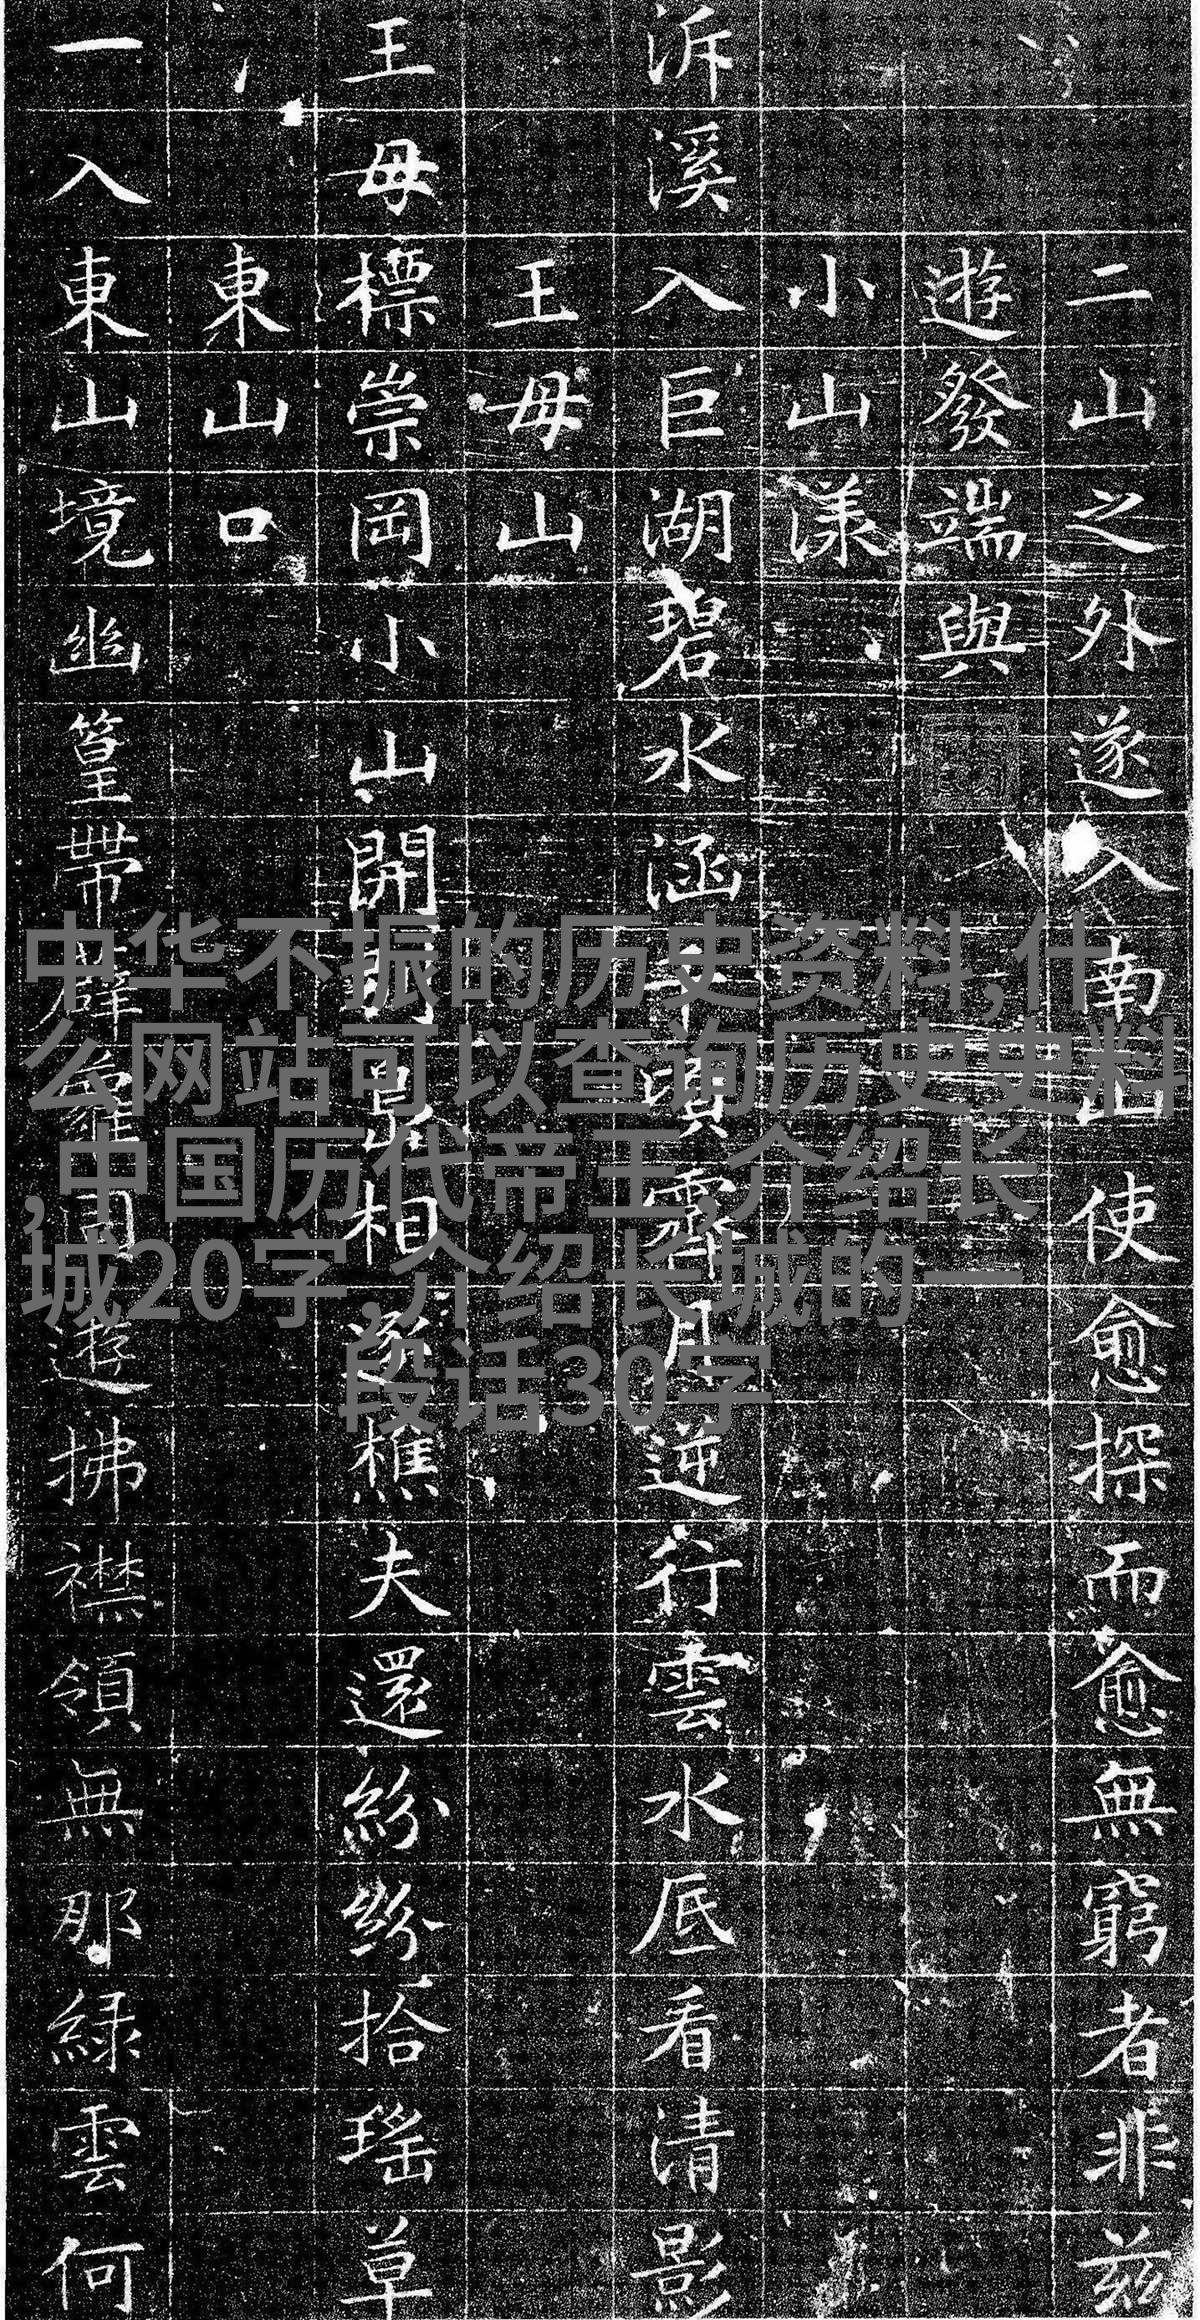 二山之外遂入南山使愈探而愈無窮者非兹
遊發端與
小山漾
泝溪入巨湖碧水涵千頃霽月逆行雲水底看清影
王母山
王母標崇岡小山開相樵夫還紛紛拾瑶草
東山口
一入東山境幽篁帶薜蘿遊拂襟領無那緑雲何
中华不振的历史资料,什
么网站可以查询历史史料
,中国历代帝王,介绍长
城20字,介绍长城的一
段话30字